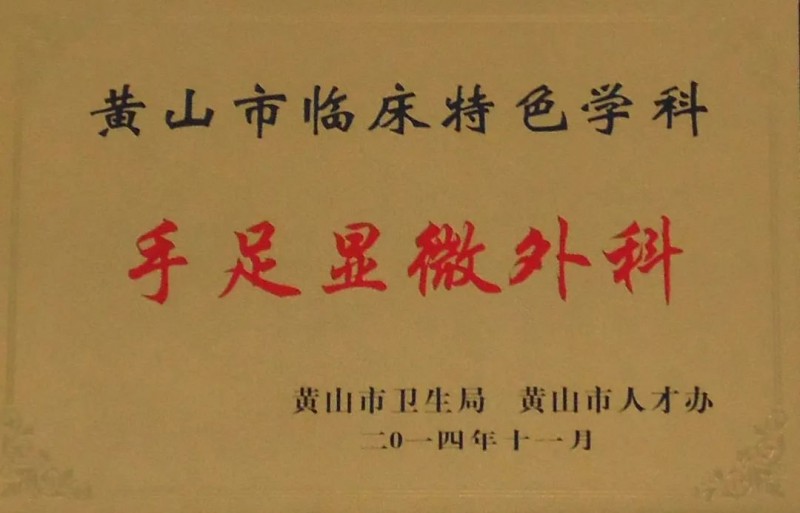 黄山市临床特色学科
手足显微外科
黄山市卫生局 黄山市人才办
二0一四年十一月